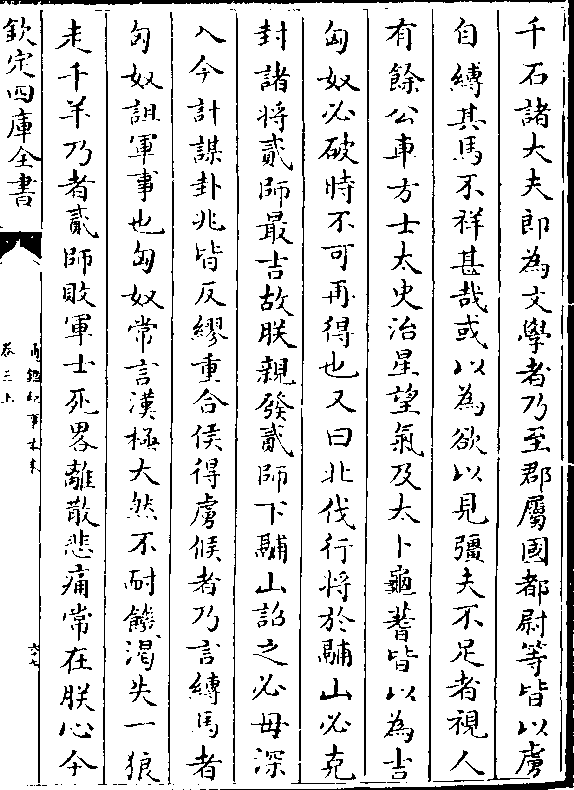 千石諸大夫郎為文學者乃至郡屬國都尉等皆以虜
自縛其馬不祥甚哉或以為欲以見彊夫不足者視人
有餘公車方士太史治星望氣及太卜龜蓍皆以為吉
匈奴必破時不可再得也又曰北伐行將於鬴山必克
封諸將貳師最吉故朕親發貳師下鬴山詔之必毋深
入今計謀卦兆皆反繆重合侯得虜候者乃言縛馬者
匈奴詛軍事也匈奴常言漢極大然不耐饑渴失一狼
走千羊乃者貳師敗軍士死畧離散悲痛常在朕心今
欽定四庫全書
卷三上